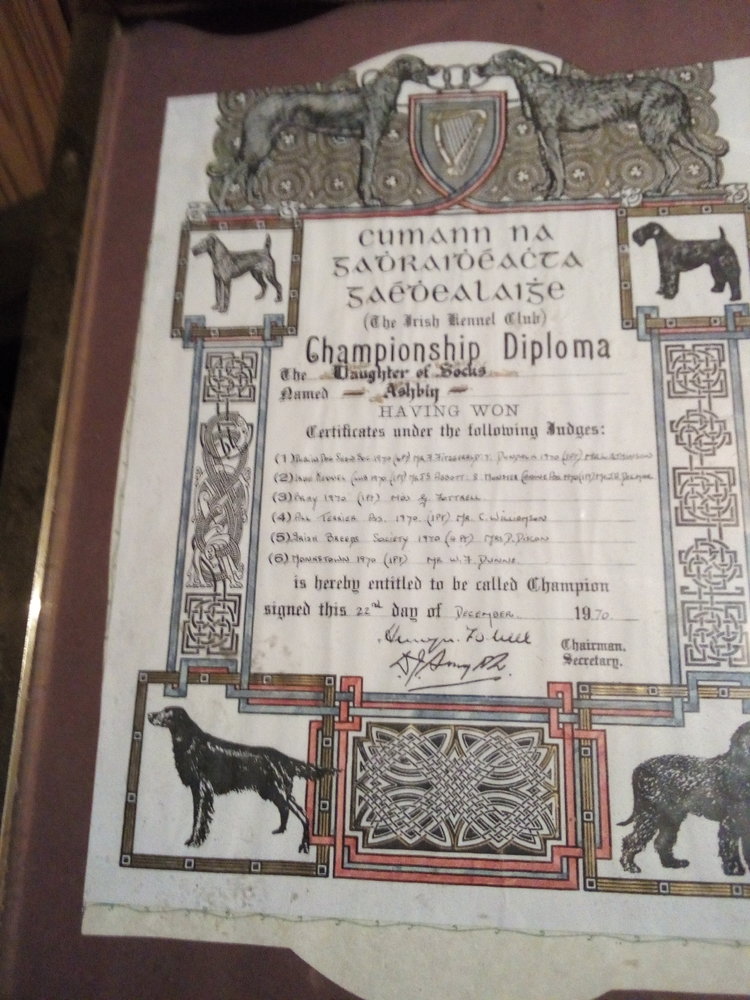 cumann na
gaḋraiḋéaċta
gaéḋealaiġe
(The Irish Kennel Club)
Championship Diploma
The Daughter of Socks
Named — Ashbin —
HAVING WON
Certificates under the following Judges:
(1) 1970 Mr. F. Fitzgerald 1970 (1PT)
(2) Irish Kennel Club 1970 (1PT) Mr J.S. Abbott.
(3) Bray 1970 (1PT) Mrs
(4) All Terrier Ass. 1970. (1PT) Mr. C. Williamson
(5) Irish Breeds Society 1970 (4PT) Mrs P. Dixon
(6) Monkstown 1970 (1PT) Mr W. F. Dunne.
is hereby entitled to be called Champion
signed this 22nd day of December. 1970.
Chairman.
Secretary.